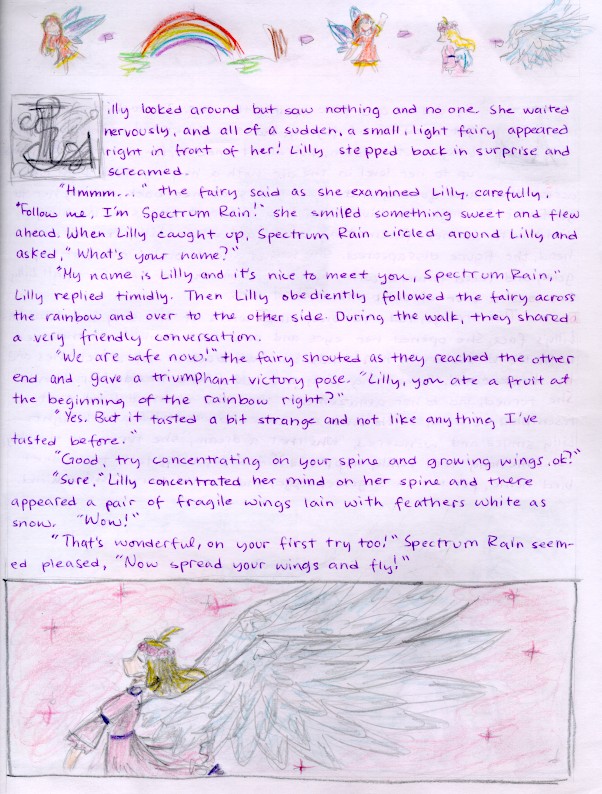 Lilly looked around but saw nothing and no one. She waited
nervously, and all of a sudden, a small, light fairy appeared
right in front of her! Lilly stepped back in surprise and
screamed.
"Hmmm..." the fairy said as she examined Lilly carefully.
"Follow me, I'm Spectrum Rain!" she smiled something sweet and flew
ahead. When Lilly caught up, Spectrum Rain circled around Lilly and
asked, "What's your name?"
"My name is Lilly and it's nice to meet you, Spectrum Rain,"
Lilly replied timidly. Then Lilly obediently followed the fairy across
the rainbow and over to the other side. During the walk, they shared
a very friendly conversation.
"We are safe now!" the fairy shouted as they reached the other
end and gave a triumphant victory pose. "Lilly, you ate a fruit at
the beginning of the rainbow right?"
"Yes. But it tasted a bit strange and not like anything I've
tasted before."
"Good, try concentrating on your spine and growing wings, ok?"
"Sure," Lilly concentrated her mind on her spine and there
appeared a pair of fragile wings lain with feathers white as
snow. "Wow!"
"That's wonderful, on your first try too!" Spectrum Rain seem-
ed pleased, "Now spread your wings and fly!"